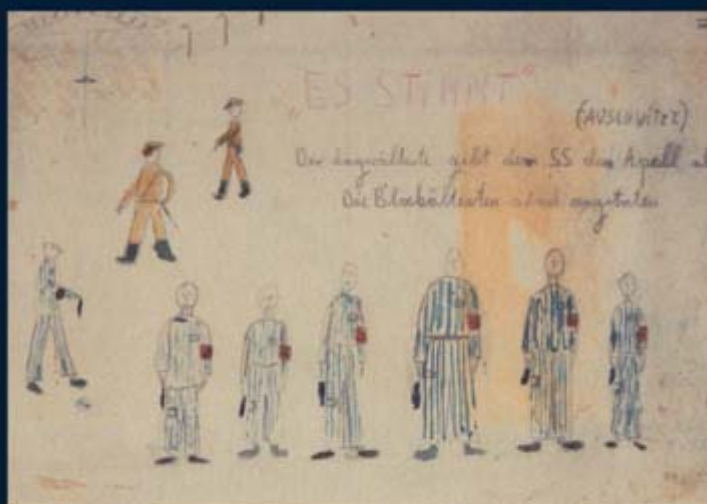 „ES STIMMT"
(AUSCHWITZ)
Der Lagerälteste gibt dem SS den Apell
Die Blockältesten sind angetreten